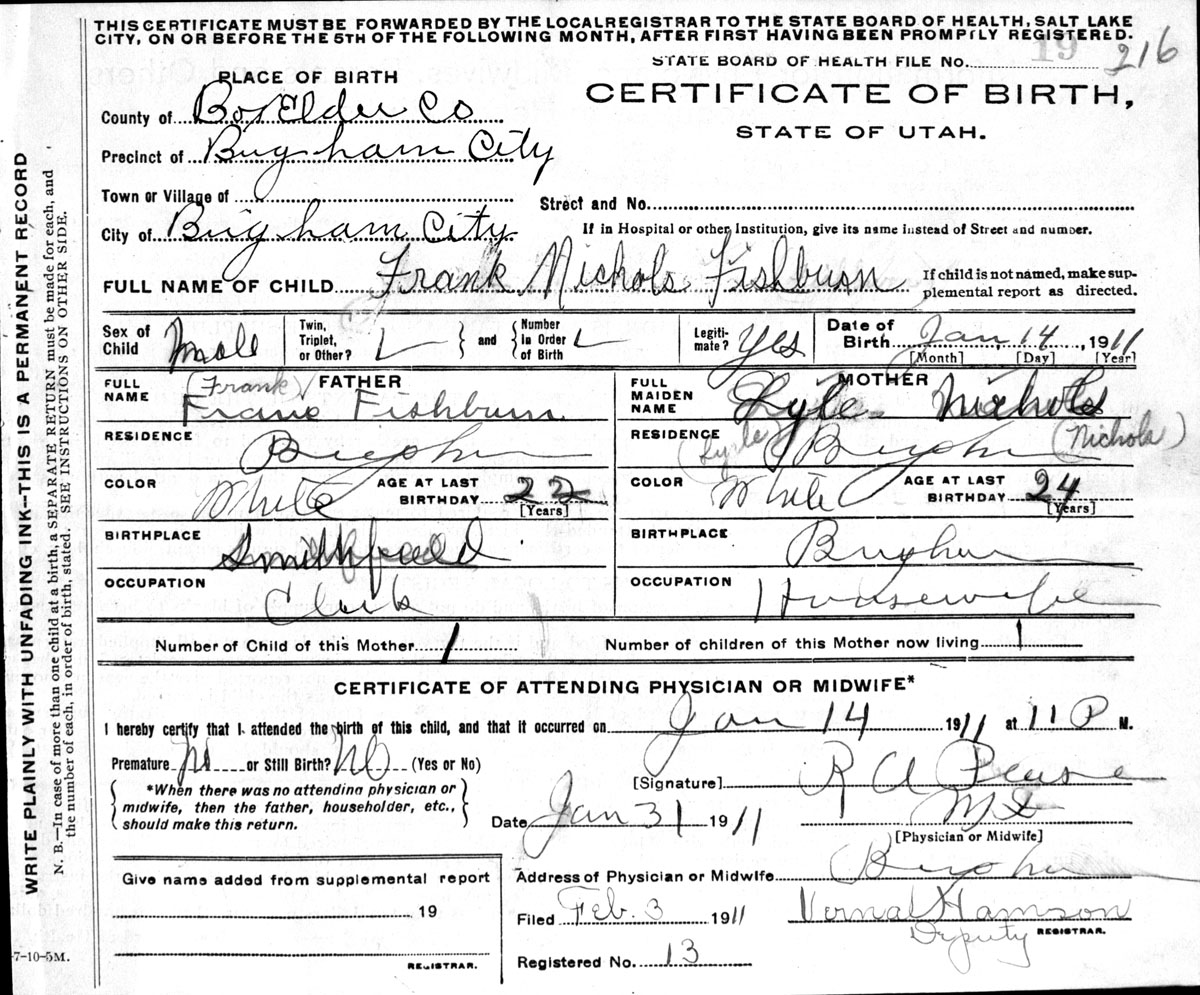 THIS CERTIFICATE MUST BE FORWARDED BY THE LOCAL REGISTRAR TO THE STATE BOARD OF HEALTH, SALT LAKE
CITY, ON OR BEFORE THE 5TH OF THE FOLLOWING MONTH, AFTER FIRST HAVING BEEN PROMPTLY REGISTERED.
STATE BOARD OF HEALTH FILE No. 19 216
PLACE OF BIRTH
CERTIFICATE OF BIRTH,
STATE OF UTAH.
County of Box Elder Co
Precinct of Brigham City
Town or Village of
Street and No.
City of Brigham City
If in Hospital or other Institution, give its name instead of Street and number.
FULL NAME OF CHILD Frank Nichols Fishburn
If child is not named, make sup-
plemental report as directed.
Sex of Child Male
Twin, Triplet, or Other? and Number In Order of Birth
Legiti-mate? Yes
Date of Birth Jan 14, 1911
[Month] [Day] [Year]
FATHER
FULL NAME (Frank) Fishburn
RESIDENCE Brigham
COLOR White AGE AT LAST BIRTHDAY 22 [Years]
BIRTHPLACE Smithfield
OCCUPATION Clerk
MOTHER
FULL MAIDEN NAME Lyle Nichols
(Nichols)
RESIDENCE Brigham
COLOR White AGE AT LAST BIRTHDAY 24 [Years]
BIRTHPLACE Brigham
OCCUPATION Housewife
Number of Child of this Mother 1
Number of children of this Mother now living 1
CERTIFICATE OF ATTENDING PHYSICIAN OR MIDWIFE*
I hereby certify that I attended the birth of this child, and that it occurred on Jan 14 1911 at 11 P M.
Premature No or Still Birth? No (Yes or No)
[Signature] R A Pearse
*When there was no attending physician or
midwife, then the father, householder, etc.,
should make this return.
Date Jan 31 1911
MD
[Physician or Midwife]
Give name added from supplemental report
19
REGISTRAR.
Address of Physician or Midwife Brigham
Filed Feb. 3 1911 Vernal Hamson
Deputy REGISTRAR.
Registered No. 13
7-10-5M.
WRITE PLAINLY WITH UNFADING INK—THIS IS A PERMANENT RECORD
N. B.—In case of more than one child at a birth, a SEPARATE RETURN must be made for each, and
the number of each, in order of birth, stated. SEE INSTRUCTIONS ON OTHER SIDE.